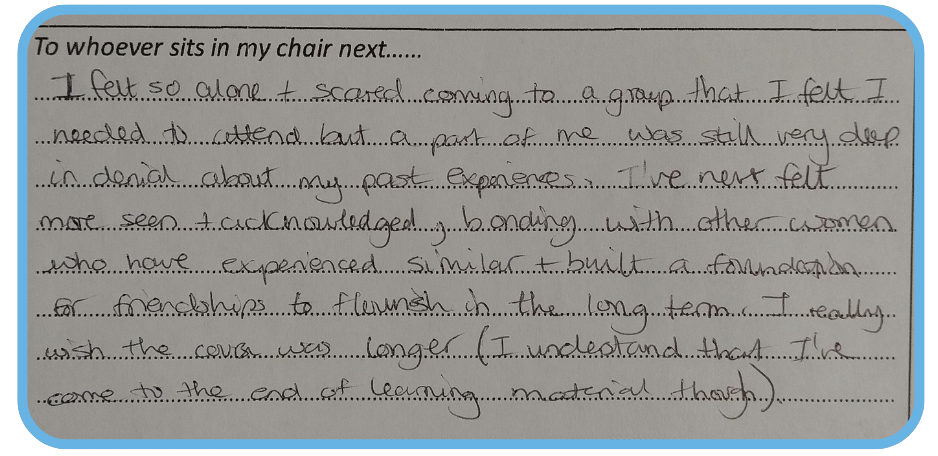 To whoever sits in my chair next......
I felt so alone + scared coming to a group that I felt I
needed to attend but a part of me was still very deep
in denial about my past experiences. I've never felt
more seen + acknowledged, bonding with other women
who have experienced similar + built a foundation
for friendships to flourish in the long term. I really
wish the course was longer (I understand that I've
come to the end of learning material though).